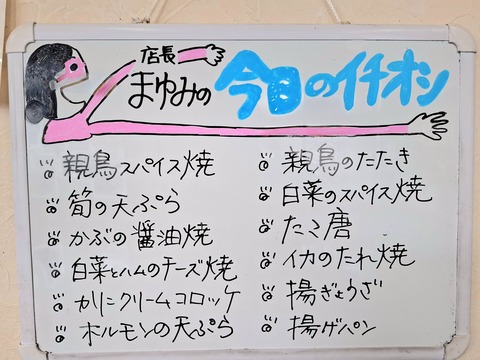 店長
まゆみの
今日のイチオシ
親鳥スパイス焼
筍の天ぷら
かぶの醤油焼
白菜とハムのチーズ焼
かにクリームコロッケ
ホルモンの天ぷら
親鳥のたたき
白菜のスパイス焼
たこ唐
イカのたれ焼
揚ぎょうざ
揚げパン